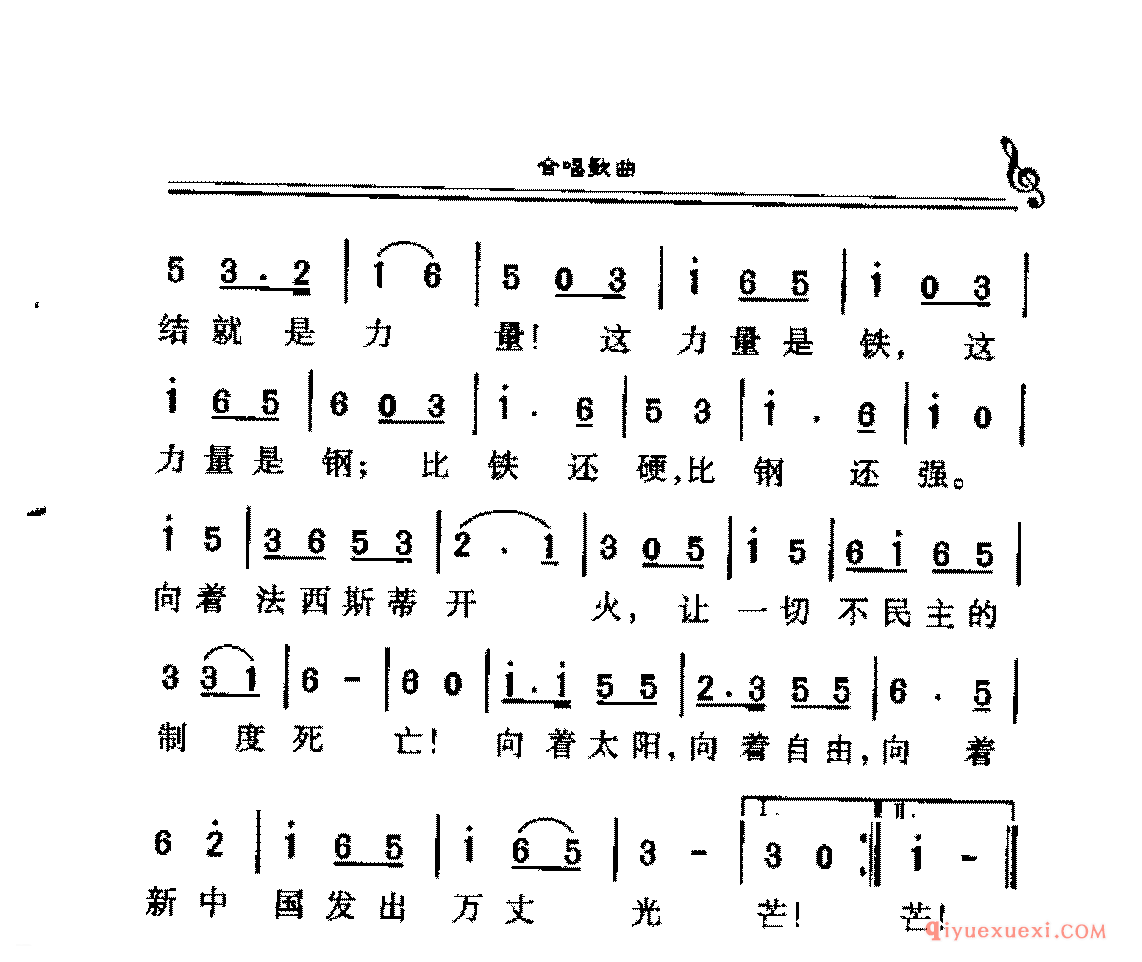 合唱歌曲
5 3. 2 | 1 6 | 5 0 3 | i 6 5 | i 0 3 |
结就是力 量! 这 力量是 铁, 这
i 6 5 | 6 0 3 | i . 6 | 5 3 | i . 6 | i 0 |
力量是 钢; 比 铁 还 硬,比 钢 还 强。
i 5 | 3 6 5 3 | 2 . 1 | 3 0 5 | i 5 | 6 i 6 5 |
向着 法西斯蒂 开 火, 让 一切 不民主的
3 3 1 | 6 - | 6 0 | i. i 5 5 | 2. 3 5 5 | 6 . 5 |
制 度 死 亡! 向着太阳,向着自由,向 着
I. II.
6 2̇ | i 6 5 | i 6 5 | 3 - | 3 0 :| i - ‖
新中 国发出 万丈 光 芒! 芒!
qiyuexuexi.COM